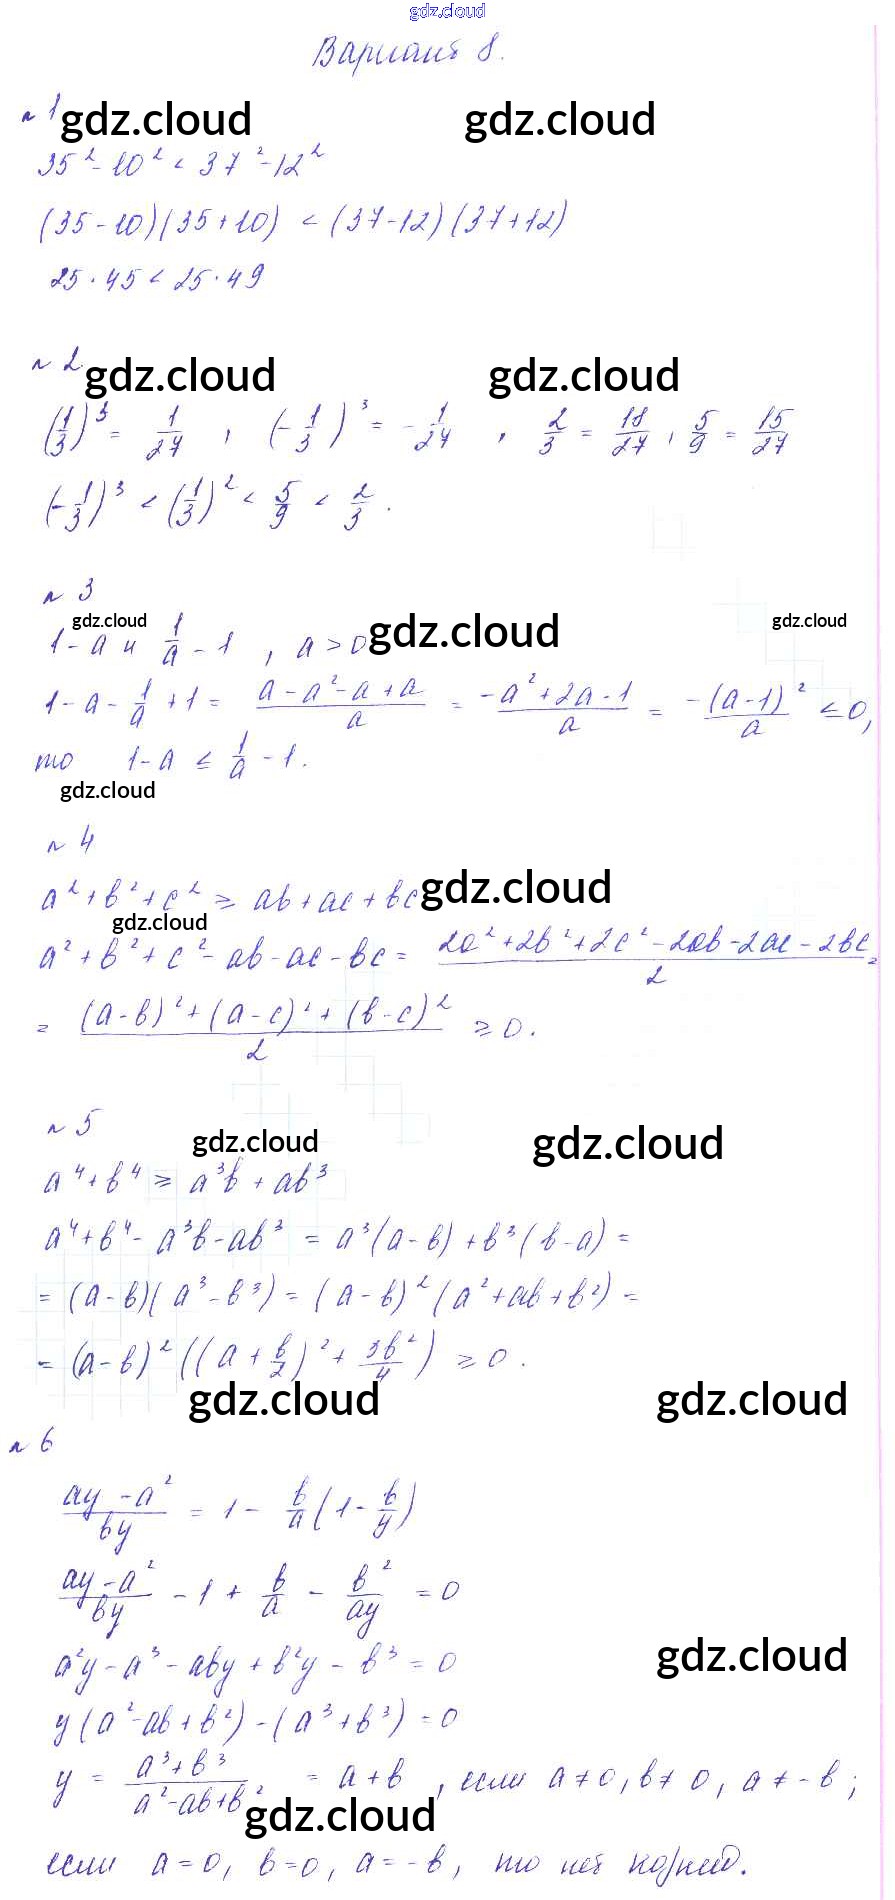 gdz.cloud
Вариант 8.
№ 1 gdz.cloud gdz.cloud
35² - 10² < 37² - 12²
(35 - 10)(35 + 10) < (37 - 12)(37 + 12)
25 · 45 < 25 · 49
№ 2 gdz.cloud gdz.cloud
(1/3)³ = 1/27 , (-1/3)³ = -1/27 , 2/3 = 18/27 , 5/9 = 15/27
(-1/3)³ < (1/3)² < 5/9 < 2/3 .
№ 3
gdz.cloud gdz.cloud gdz.cloud
1 - a и 1/a - 1 , a > 0
1 - a - 1/a + 1 = (a - a² - a + a)/a = (-a² + 2a - 1)/a = -(a - 1)²/a ≤ 0,
то 1 - a ≤ 1/a - 1 .
gdz.cloud
№ 4
a² + b² + c² ≥ ab + ac + bc gdz.cloud
gdz.cloud
a² + b² + c² - ab - ac - bc = (2a² + 2b² + 2c² - 2ab - 2ac - 2bc)/2 =
= ((a - b)² + (a - c)² + (b - c)²)/2 ≥ 0 .
№ 5
gdz.cloud gdz.cloud
a⁴ + b⁴ ≥ a³b + ab³
a⁴ + b⁴ - a³b - ab³ = a³(a - b) + b³(b - a) =
= (a - b)(a³ - b³) = (a - b)²(a² + ab + b²) =
= (a - b)²((a + b/2)² + 3b²/4) ≥ 0 .
gdz.cloud gdz.cloud
№ 6
(ay - a²)/by = 1 - b/a (1 - b/y)
(ay - a²)/by - 1 + b/a - b²/ay = 0
gdz.cloud
a²y - a³ - aby + b²y - b³ = 0
y(a² - ab + b²) - (a³ + b³) = 0
y = (a³ + b³)/(a² - ab + b²) = a + b , если a ≠ 0, b ≠ 0, a ≠ - b ;
gdz.cloud
если a = 0, b = 0, a = - b, то нет корней.